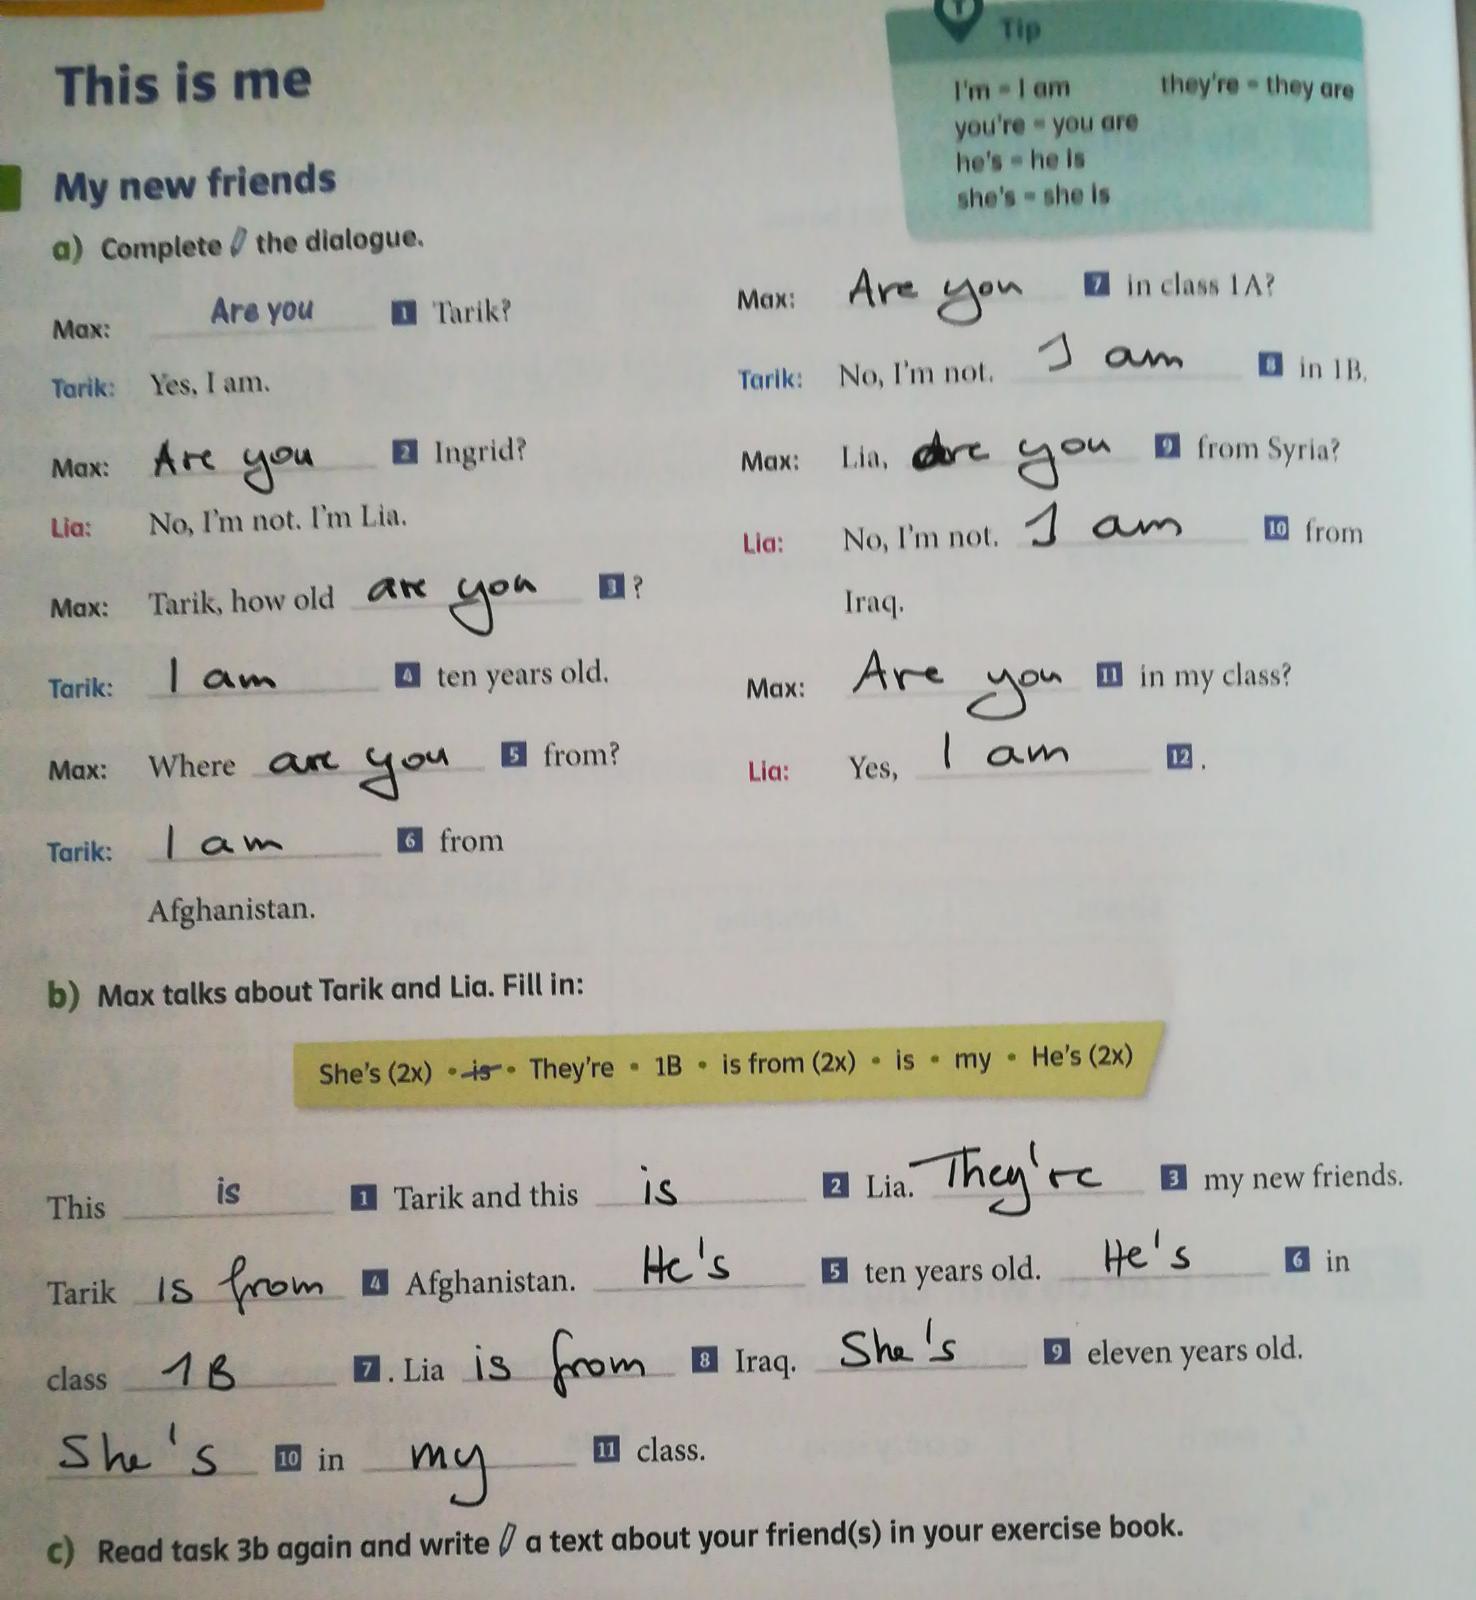 Tip
I'm = I am they're = they are
you're = you are
he's = he is
she's = she is
This is me
My new friends
a) Complete the dialogue.
Max: Are you 1 Tarik?
Tarik: Yes, I am.
Max: Are you 2 Ingrid?
Lia: No, I'm not. I'm Lia.
Max: Tarik, how old are you 3 ?
Tarik: I am 4 ten years old.
Max: Where are you 5 from?
Tarik: I am 6 from
Afghanistan.
Max: Are you 7 in class 1A?
Tarik: No, I'm not. I am 8 in 1B.
Max: Lia, are you 9 from Syria?
Lia: No, I'm not. I am 10 from
Iraq.
Max: Are you 11 in my class?
Lia: Yes, I am 12 .
b) Max talks about Tarik and Lia. Fill in:
She's (2x) • is • They're • 1B • is from (2x) • is • my • He's (2x)
This is 1 Tarik and this is 2 Lia. They're 3 my new friends.
Tarik is from 4 Afghanistan. He's 5 ten years old. He's 6 in
class 1B 7 . Lia is from 8 Iraq. She's 9 eleven years old.
She's 10 in my 11 class.
c) Read task 3b again and write a text about your friend(s) in your exercise book.